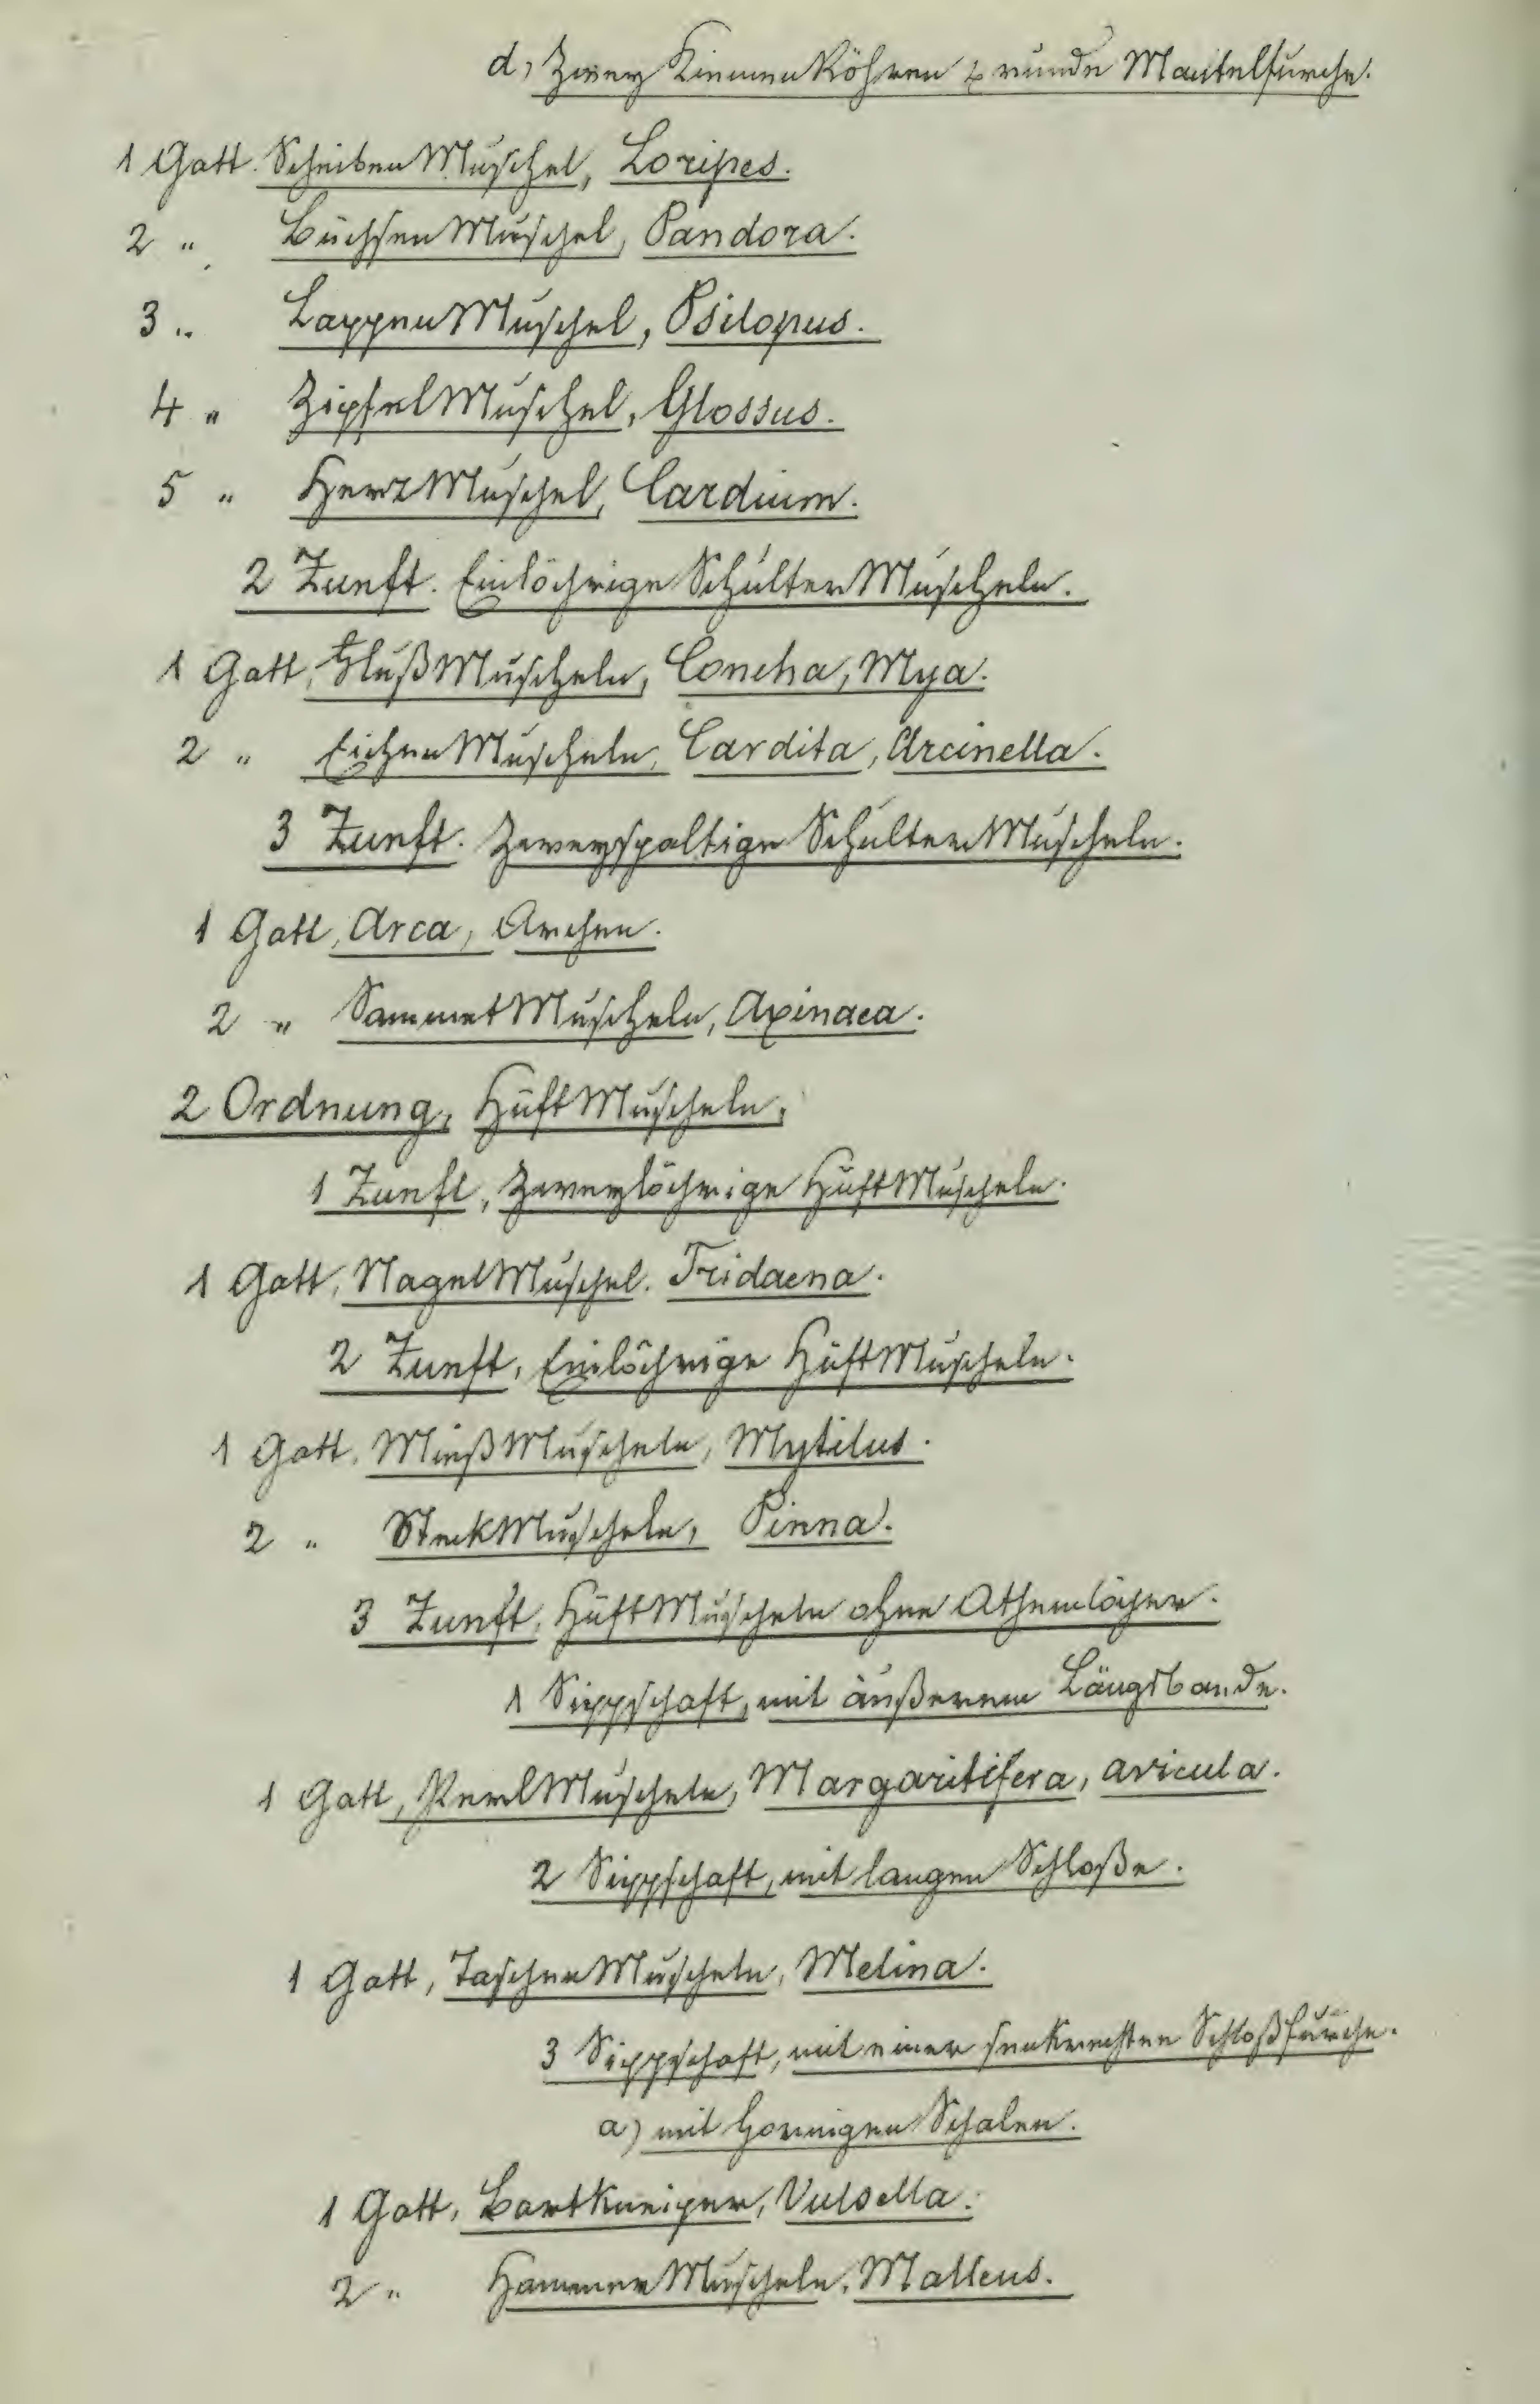 d, Zwey KiemenRöhren & runde Mantelfurche.
1 Gatt. ScheibenMuschel, Loripes.
2 „ BüchsenMuschel, Pandora.
3 „ LappenMuschel, Psilopus.
4 „ ZipfelMuschel, Glossus.
5 „ HerzMuschel, Cardium.
2 Zunft. Einlöchrige SchulterMuscheln.
1 Gatt, FlußMuscheln, Concha, Mya.
2 „ EichenMuscheln, Cardita, Arcinella.
3 Zunft. Zweyspaltige SchulterMuscheln.
1 Gatt, Arca, Archen.
2 „ SammetMuscheln, Axinaea.
2 Ordnung, HüftMuscheln,
1 Zunft, Zweylöchrige HüftMuscheln.
1 Gatt, NagelMuschel. Tridacna.
2 Zunft, Einlöchrige HüftMuscheln.
1 Gatt, MießMuscheln, Mytilus.
2 „ SteckMuscheln, Pinna.
3 Zunft, HüftMuscheln ohne Athemlöcher.
1 Sippschaft, mit äußerem Längsbande.
1 Gatt, PerlMuscheln, Margaritifera, avicula.
2 Sippschaft, mit langen Schloße.
1 Gatt, TaschenMuscheln, Melina.
3 Sippschaft, mit einer senkrechten Schloßfurche.
a) mit hornigen Schalen.
1 Gatt, Bartkneiper, Vulsella.
2 „ HammerMuscheln, Malleus.